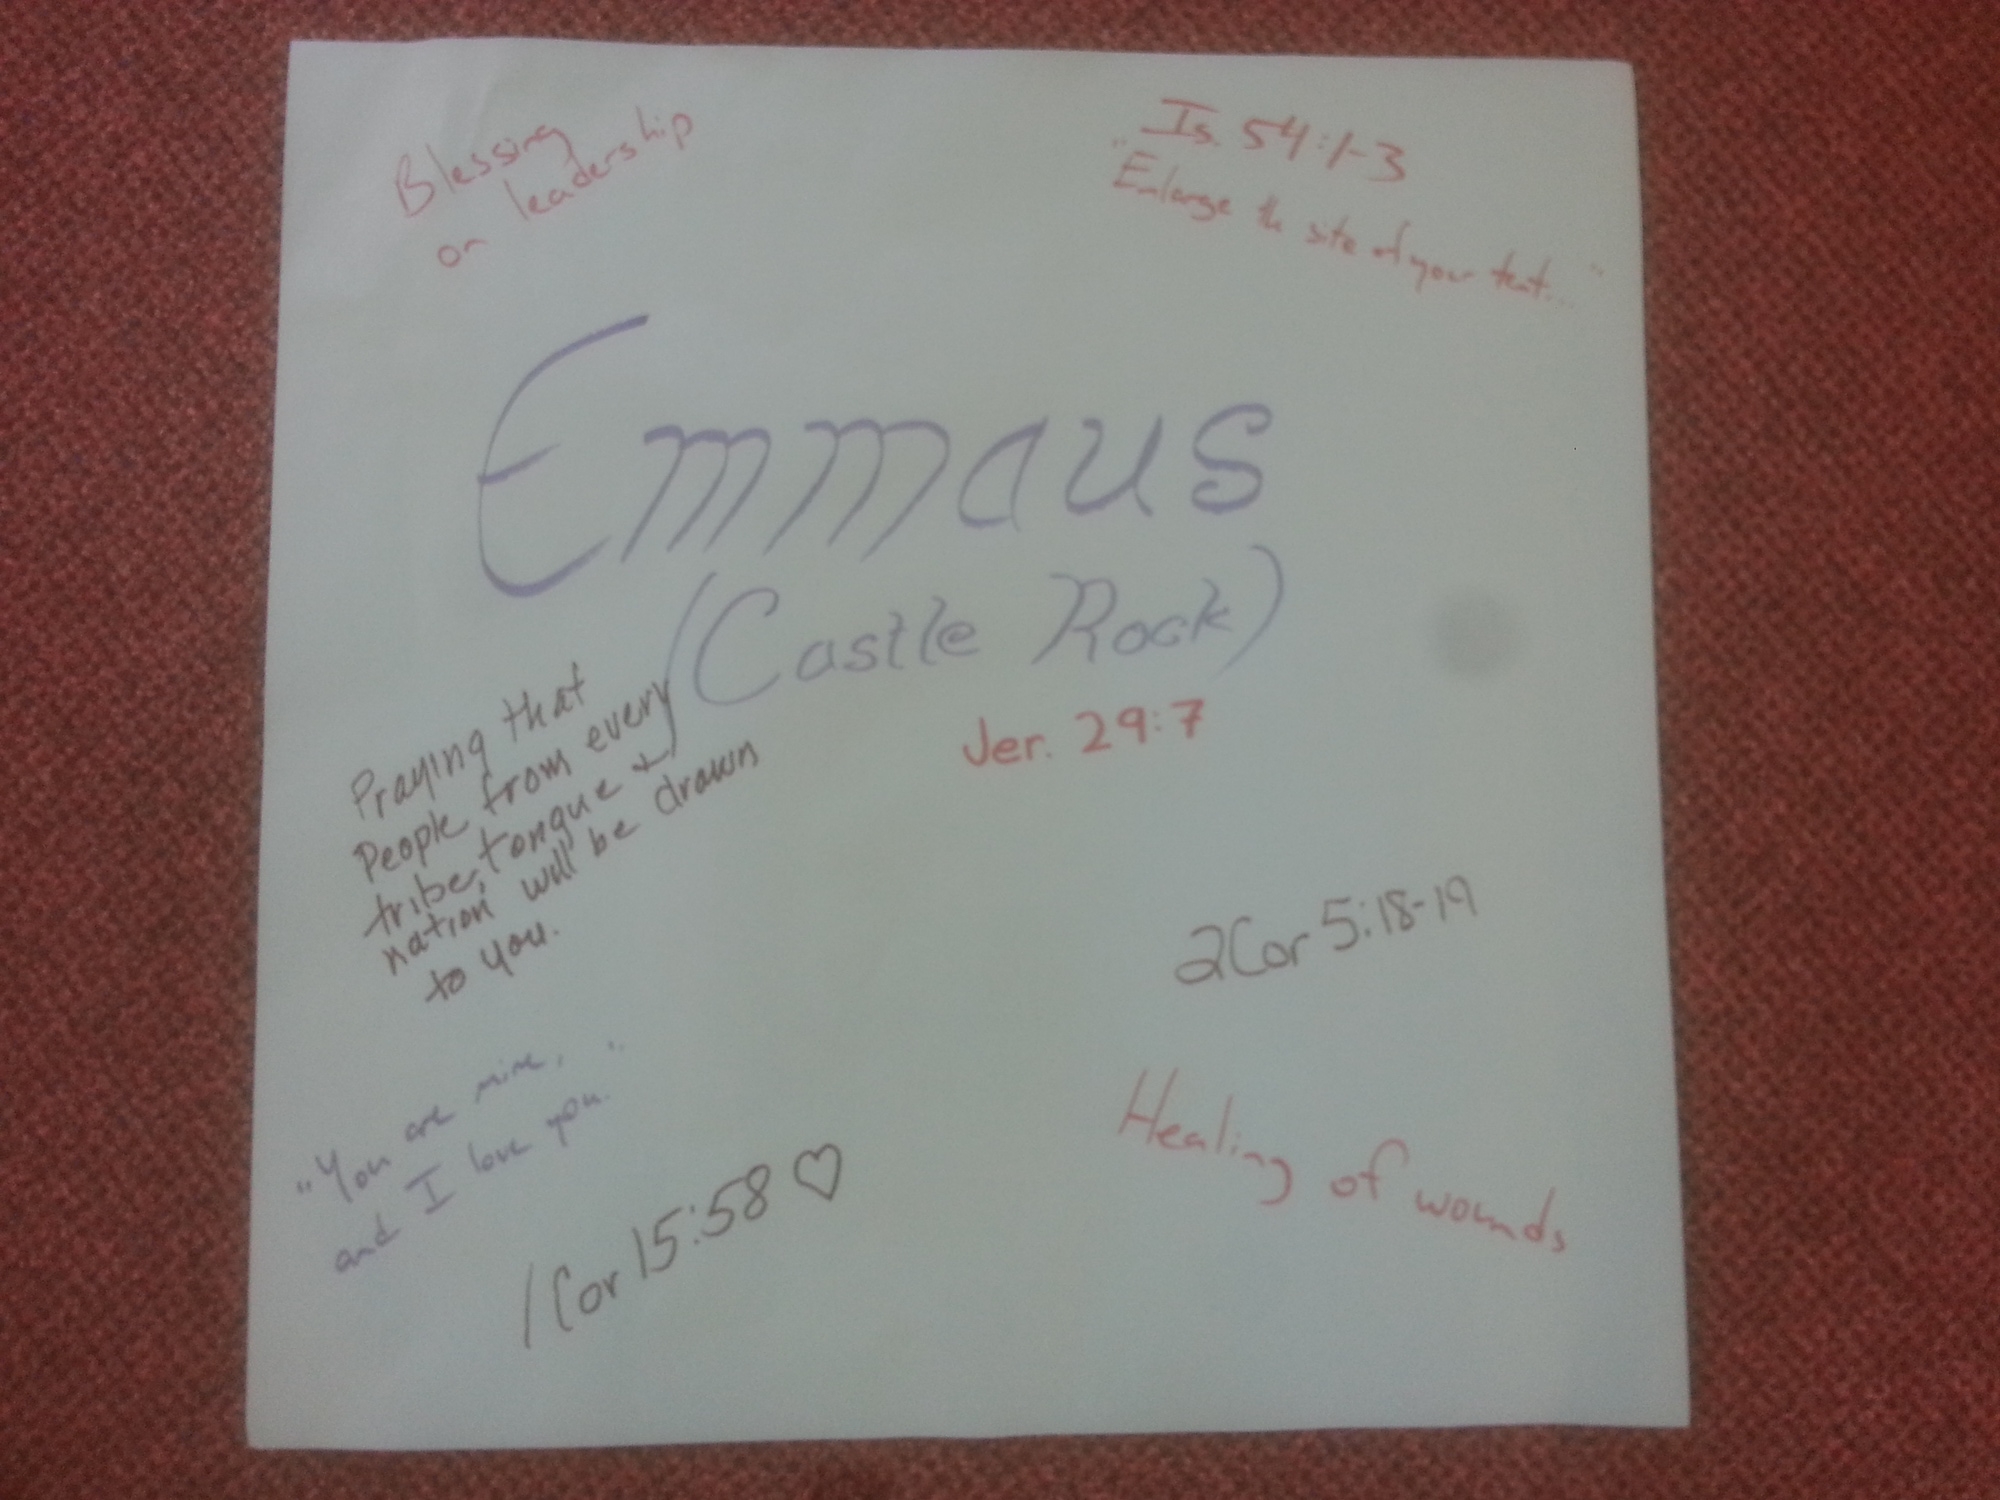 Blessing
on leadership
Is. 54:1-3
"Enlarge the site of your tent..."
Emmaus
(Castle Rock)
Jer. 29:7
Praying that
People from every
tribe, tongue &
nation will be drawn
to you.
2Cor 5:18-19
"You are mine,
and I love you."
Healing of wounds
1 Cor 15:58 ♡